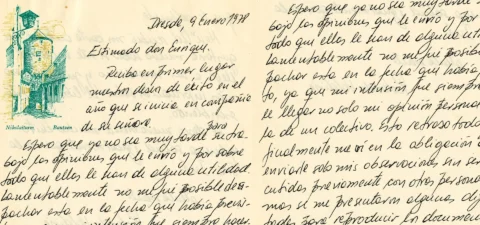 Dresde, 9 Enero 1978
Nikolaiturm Bautzen
Estimado don Enrique.
Reciba en primer lugar
nuestro deseo de éxito en el
año que se inicia en compañía
de su señora.
para
Espero que ya no sea muy tarde su tra-
bajo las opiniones que le envío y por sobre
todo que ellas le sean de alguna utilidad.
Lamentablemente no me fue posible des-
pachar esta en la fecha que había previs-
intención fue siempre hacer
Espero que ya no sea muy tarde
bajo las opiniones que le envío y p
todo que ellas le sean de alguna utili
Lamentablemente no me fue posib
pachar esta en la fecha que había
to, ya que mi intención fue siempre
le llegar no solo mi opinión persona
la de un colectivo. Esto retrasó todo
finalmente me vi en la obligación d
enviarle solo mis observaciones sin ser
cutidas previamente con otras persona
mas se me presentaron algunos
todas para reproducir los documen